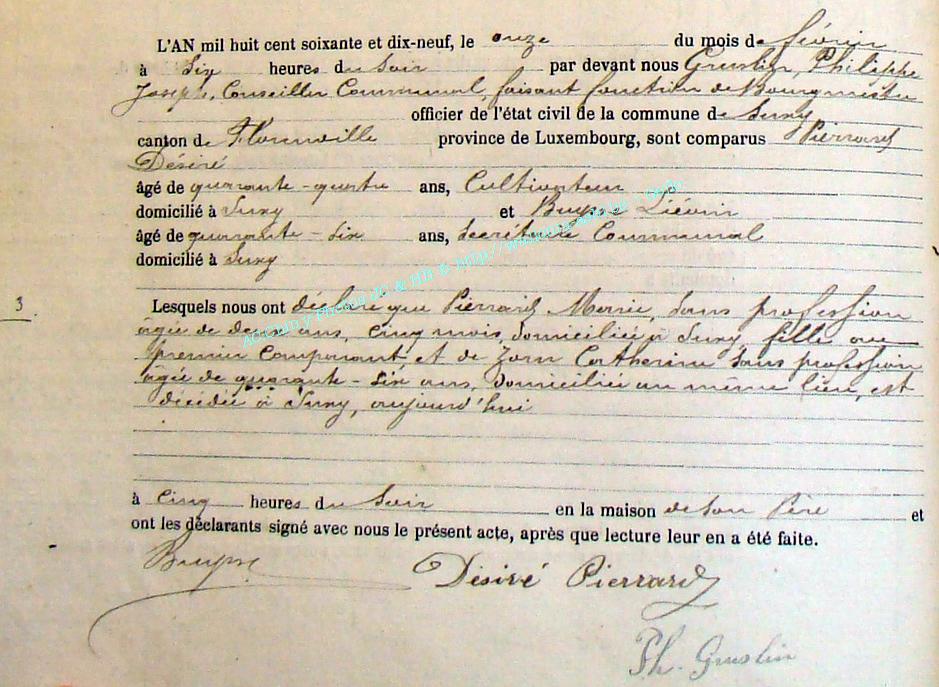 L'AN mil huit cent soixante et dix-neuf, le onze du mois de février
à Six heures du Soir par devant nous Gruslin, Philippe
Joseph, Conseiller Communal, faisant fonction de Bourgmestre
officier de l'état civil de la commune de Suxy
canton de Florenville province de Luxembourg, sont comparus Pierrard
Désiré
âgé de quarante-quatre ans, Cultivateur
domicilié à Suxy et Buysse Liévin
âgé de quarante-six ans, Secrétaire Communal
domicilié à Suxy
3
Lesquels nous ont déclaré que Pierrard Marie, Sans profession
âgée de ans, cinq mois, domiciliée à Suxy, fille au
premier comparant et de Zorn Catherine Sans profession
âgée de quarante-six ans, domiciliée au même lieu, est
décédée à Suxy, aujourd'hui
à cinq heures du Soir en la maison de Son Père et
ont les déclarants signé avec nous le présent acte, après que lecture leur en a été faite.
Buysse Désiré Pierrard
Ph. Gruslin